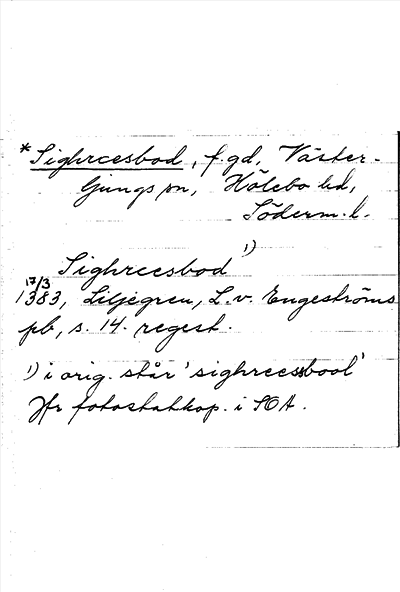 *Sighrcesbod, f.gd, Väster-
Ljungs sn, Hölebo hd,
Söderm. l.
Sighrcesbod 1)
17/3
1383, Liljegren, L. v. Engeströms
pb, s. 14. regest.
1) i orig. står 'sighreesbool'
Jfr fotostatkop. i SOA.